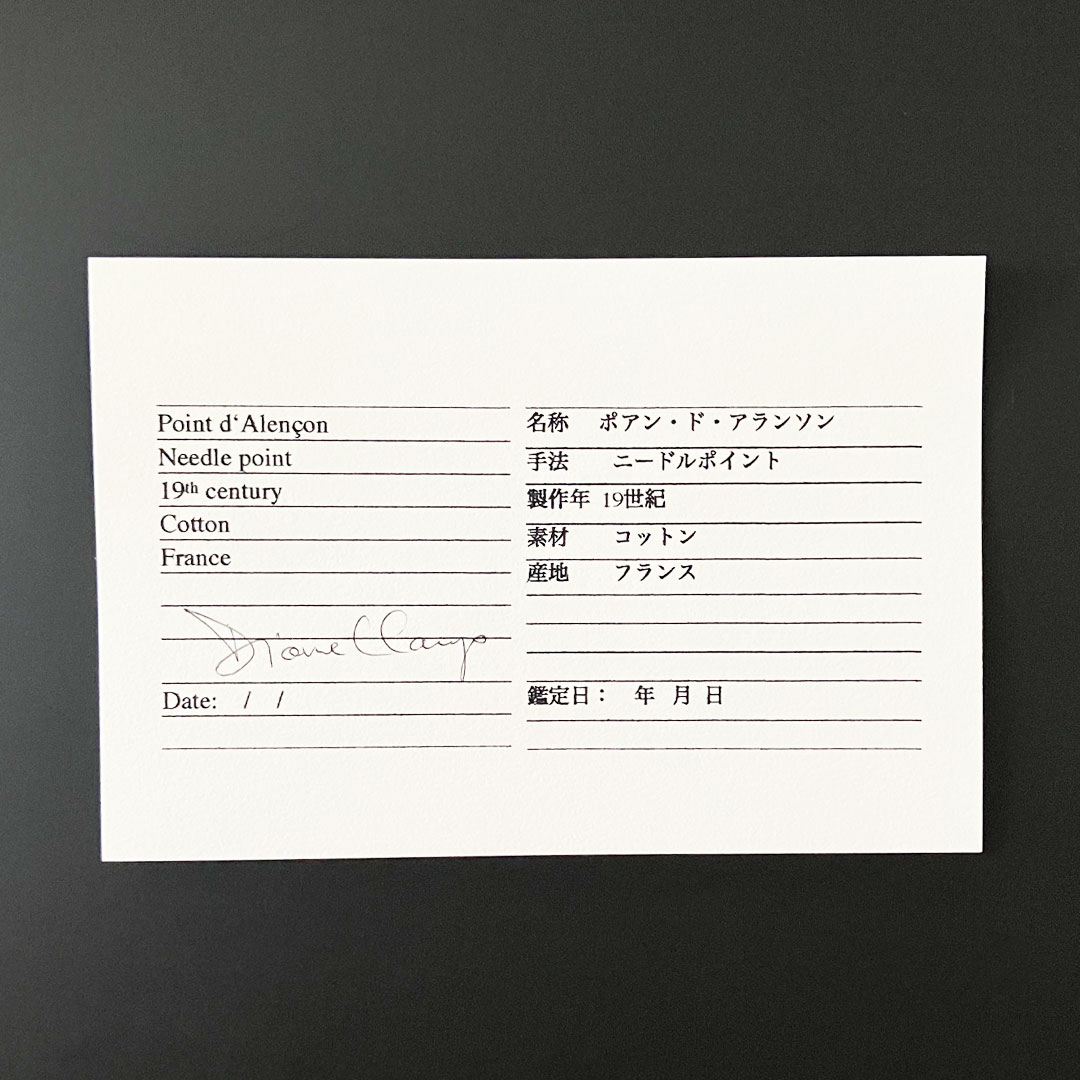 Point d‘Alençon
Needle point
19th century
Cotton
France
Diane Claeys
Date: / /
名称 ポアン・ド・アランソン
手法 ニードルポイント
製作年 19世紀
素材 コットン
産地 フランス
鑑定日： 年 月 日